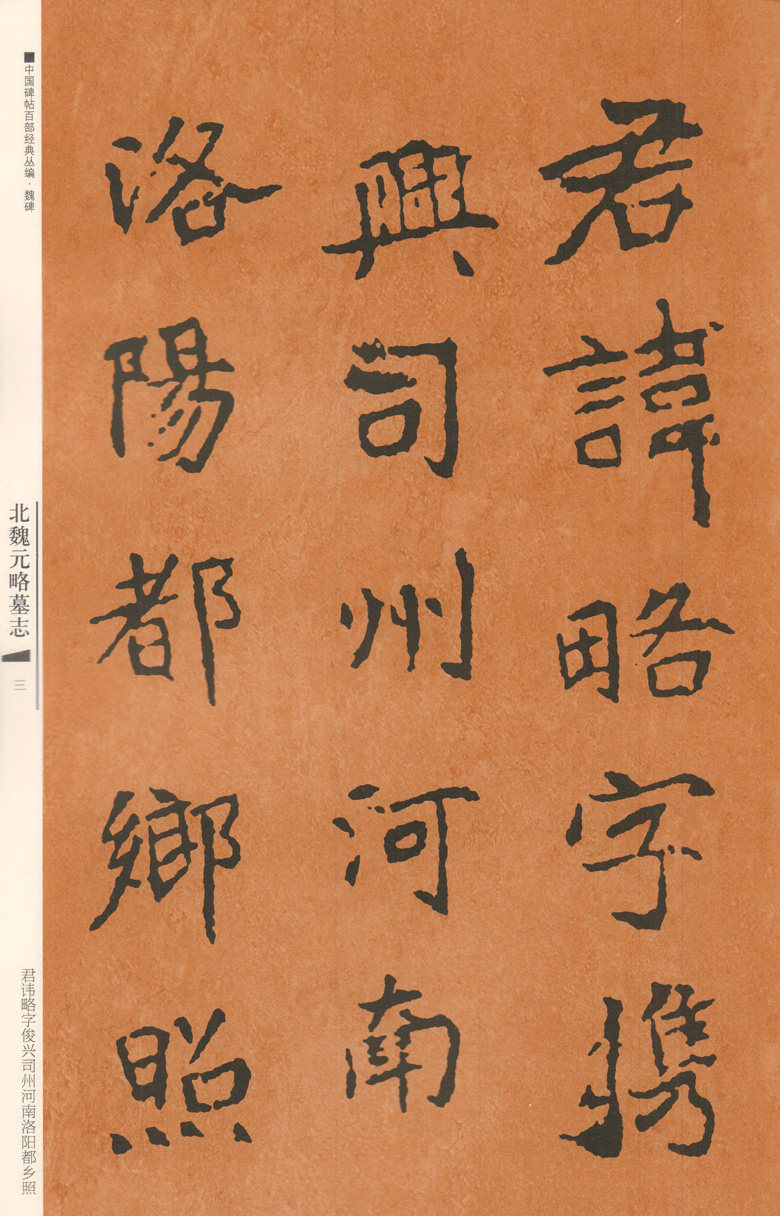 君諱略字㩦
興司州河南
洛陽都鄉照
■中国碑帖百部经典丛编·魏碑
北魏元略墓志
三
君讳略字俊兴司州河南洛阳都乡照